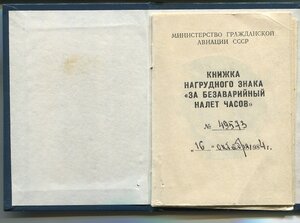 МИНИСТЕРСТВО ГРАЖДАНСКОЙ
АВИАЦИИ СССР
КНИЖКА
НАГРУДНОГО ЗНАКА
«ЗА БЕЗАВАРИЙНЫЙ
НАЛЕТ ЧАСОВ»
№ 49523
„16" октября 1984 г.